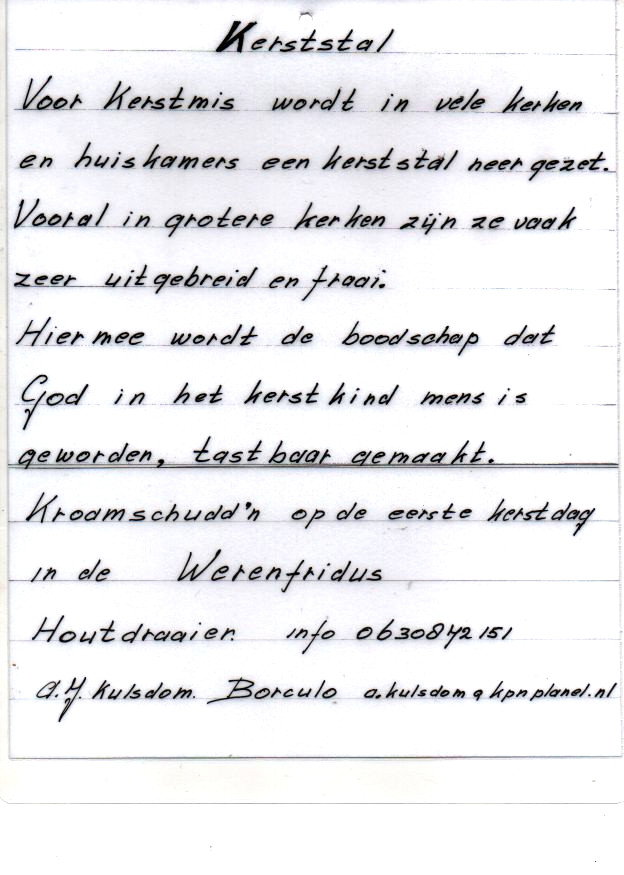 Kerststal
Voor Kerstmis wordt in vele kerken
en huiskamers een kerststal neergezet.
Vooral in grotere kerken zijn ze vaak
zeer uitgebreid en fraai.
Hiermee wordt de boodschap dat
God in het kerstkind mens is
geworden, tastbaar gemaakt.
Kroamschudd'n op de eerste kerstdag
in de Werenfridus
Houtdraaier. info 0630842151
a.y. Kulsdom. Borculo a.kulsdom@kpnplanel.nl